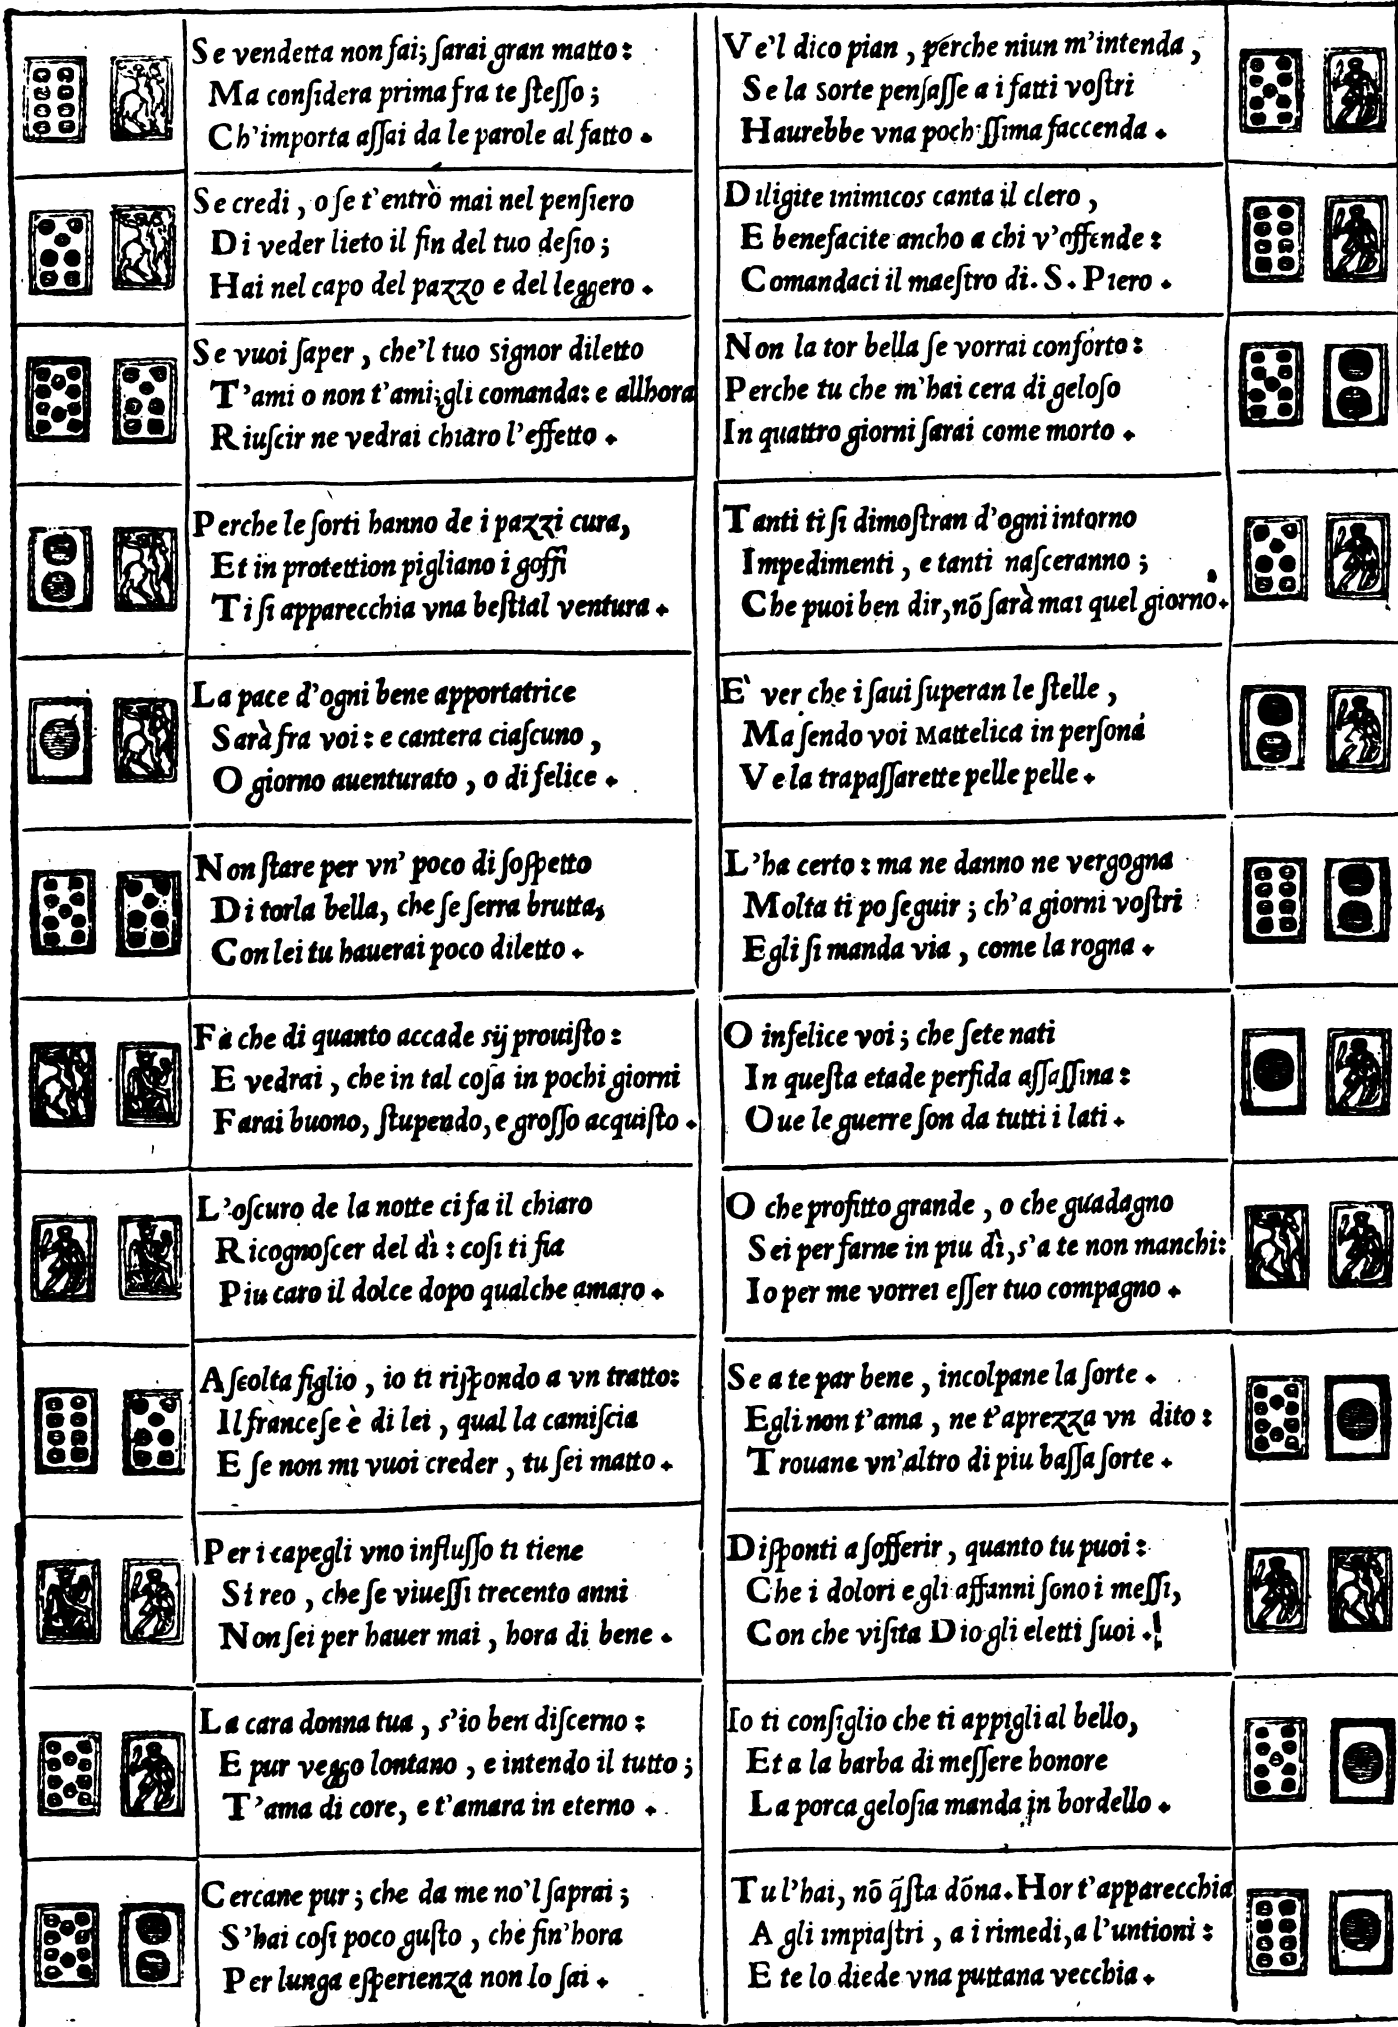 Se vendetta non fai; ſarai gran matto:
Ma conſidera prima fra te ſteſſo;
Ch'importa aſſai da le parole al fatto.
Se credi, o ſe t'entrò mai nel penſiero
Di veder lieto il fin del tuo deſio;
Hai nel capo del pazzo e del leggero.
Se vuoi ſaper, che'l tuo signor diletto
T'ami o non t'ami;gli comanda: e allhora
Riuſcir ne vedrai chiaro l'effetto.
Perche le ſorti hanno de i pazzi cura,
Et in protettion pigliano i goffi
Ti ſi apparecchia vna beſtial ventura.
La pace d'ogni bene apportatrice
Sarà fra voi: e cantera ciaſcuno,
O giorno auenturato, o di felice.
Non ſtare per vn' poco di ſoſpetto
Di torla bella, che ſe ſerra brutta,
Con lei tu hauerai poco diletto.
Fa che di quanto accade sij prouiſto:
E vedrai, che in tal coſa in pochi giorni
Farai buono, ſtupendo, e groſſo acquiſto.
L'oſcuro de la notte ci fa il chiaro
Ricognoſcer del dì: coſi ti fia
Piu caro il dolce dopo qualche amaro.
Aſcolta figlio, io ti riſpondo a vn tratto:
Il franceſe è di lei, qual la camiſcia
E ſe non mi vuoi creder, tu ſei matto.
Per i capegli vno influſſo ti tiene
Si reo, che ſe viueſſi trecento anni
Non ſei per hauer mai, hora di bene.
La cara donna tua, s'io ben diſcerno:
E pur veggo lontano, e intendo il tutto;
T'ama di core, e t'amara in eterno.
Cercane pur; che da me no'l ſaprai;
S'hai coſi poco guſto, che fin'hora
Per lunga eſperienza non lo ſai.
Ve'l dico pian, perche niun m'intenda,
Se la sorte penſaſſe a i fatti voſtri
Haurebbe vna pochiſſima faccenda.
Diligite inimicos canta il clero,
E benefacite ancho a chi v'offende:
Comandaci il maeſtro di. S. Piero.
Non la tor bella ſe vorrai conforto:
Perche tu che m'hai cera di geloſo
In quattro giorni ſarai come morto.
Tanti ti ſi dimoſtran d'ogni intorno
Impedimenti, e tanti naſceranno;
Che puoi ben dir, nõ ſarà mai quel giorno.
E' ver che i ſaui ſuperan le ſtelle,
Ma ſendo voi Mattelica in perſona
Ve la trapaſſarette pelle pelle.
L'ha certo: ma ne danno ne vergogna
Molta ti po ſeguir; ch'a giorni voſtri
Egli ſi manda via, come la rogna.
O infelice voi; che ſete nati
In queſta etade perfida aſſaſſina:
Oue le guerre ſon da tutti i lati.
O che profitto grande, o che guadagno
Sei per farne in piu dì, s'a te non manchi:
Io per me vorrei eſſer tuo compagno.
Se a te par bene, incolpane la ſorte.
Egli non t'ama, ne t'aprezza vn dito:
Trouane vn'altro di piu baſſa ſorte.
Diſponti a ſofferir, quanto tu puoi:
Che i dolori e gli affanni ſono i meſſi,
Con che viſita Dio gli eletti ſuoi.
Io ti conſiglio che ti appigli al bello,
Et a la barba di meſſere honore
La porca geloſia manda in bordello.
Tu l'hai, nõ q̃ſta dõna. Hor t'apparecchia
A gli impiaſtri, a i rimedi, a l'untioni:
E te lo diede vna puttana vecchia.